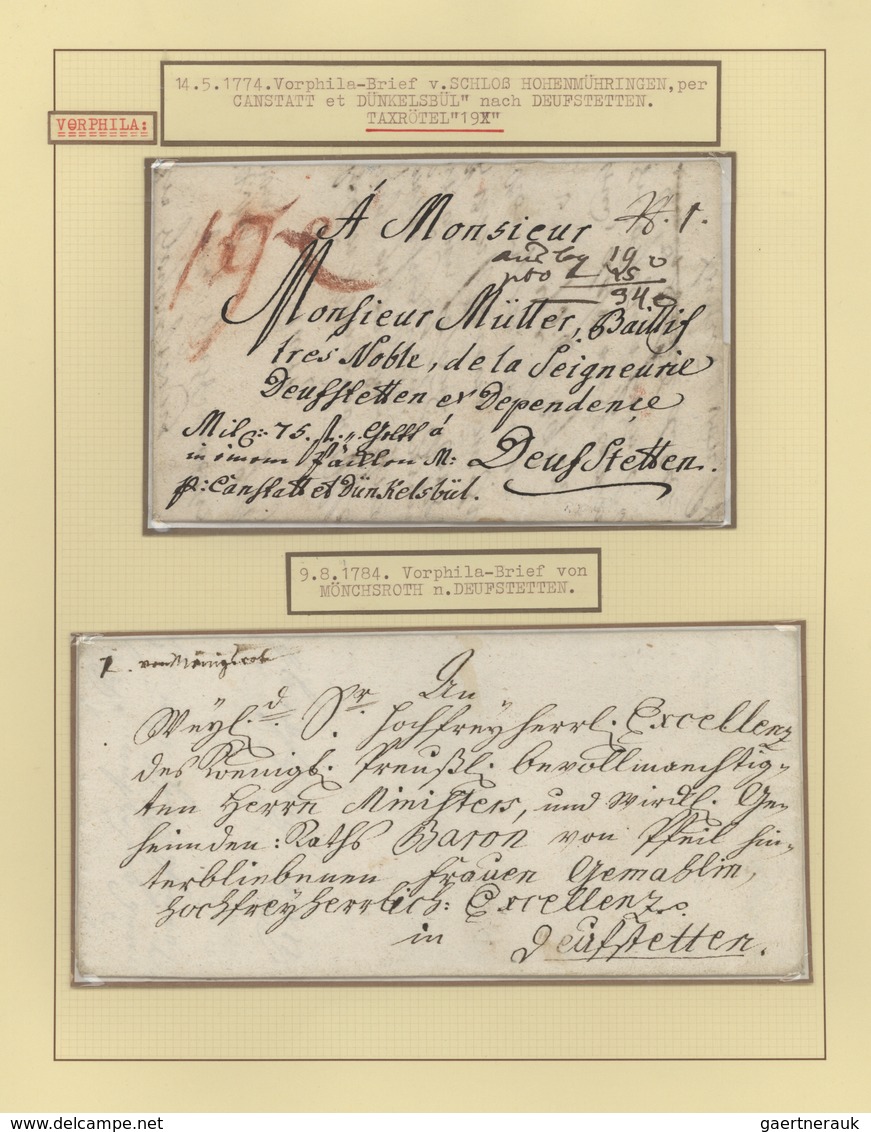 14.5.1774.Vorphila-Brief v.SCHLOß HOHENMÜHRINGEN,per
CANSTATT et DÜNKELSBÜL" nach DEUFSTETTEN.
TAXRÖTEL"19X"
VORPHILA:
19x
Á Monsieur
19
15
34
Monsieur Mütter, Baillif
tres Noble, de la Seigneurie
Deufstetten et Dependence
Mit 75. f.
in einem Päcklen M: Deufstetten.
p: Canstatt et Dünkelsbül.
9.8.1784. Vorphila-Brief von
MÖNCHSROTH n.DEUFSTETTEN.
von Mönigsroth
An
Weyl. d. Sr. Hochfreyherrl. Excellenz
des Koenigl. Preußl. bevollmaechtig-
ten Herrn Ministers, und Wirckl. Ge-
heimden: Raths Baron von Pfeil hin-
terbliebenen Frauen Gemahlin,
Hochfreyherrlich: Excellenz.
in
Deufstetten.
delcampe.net
gaertnerauk